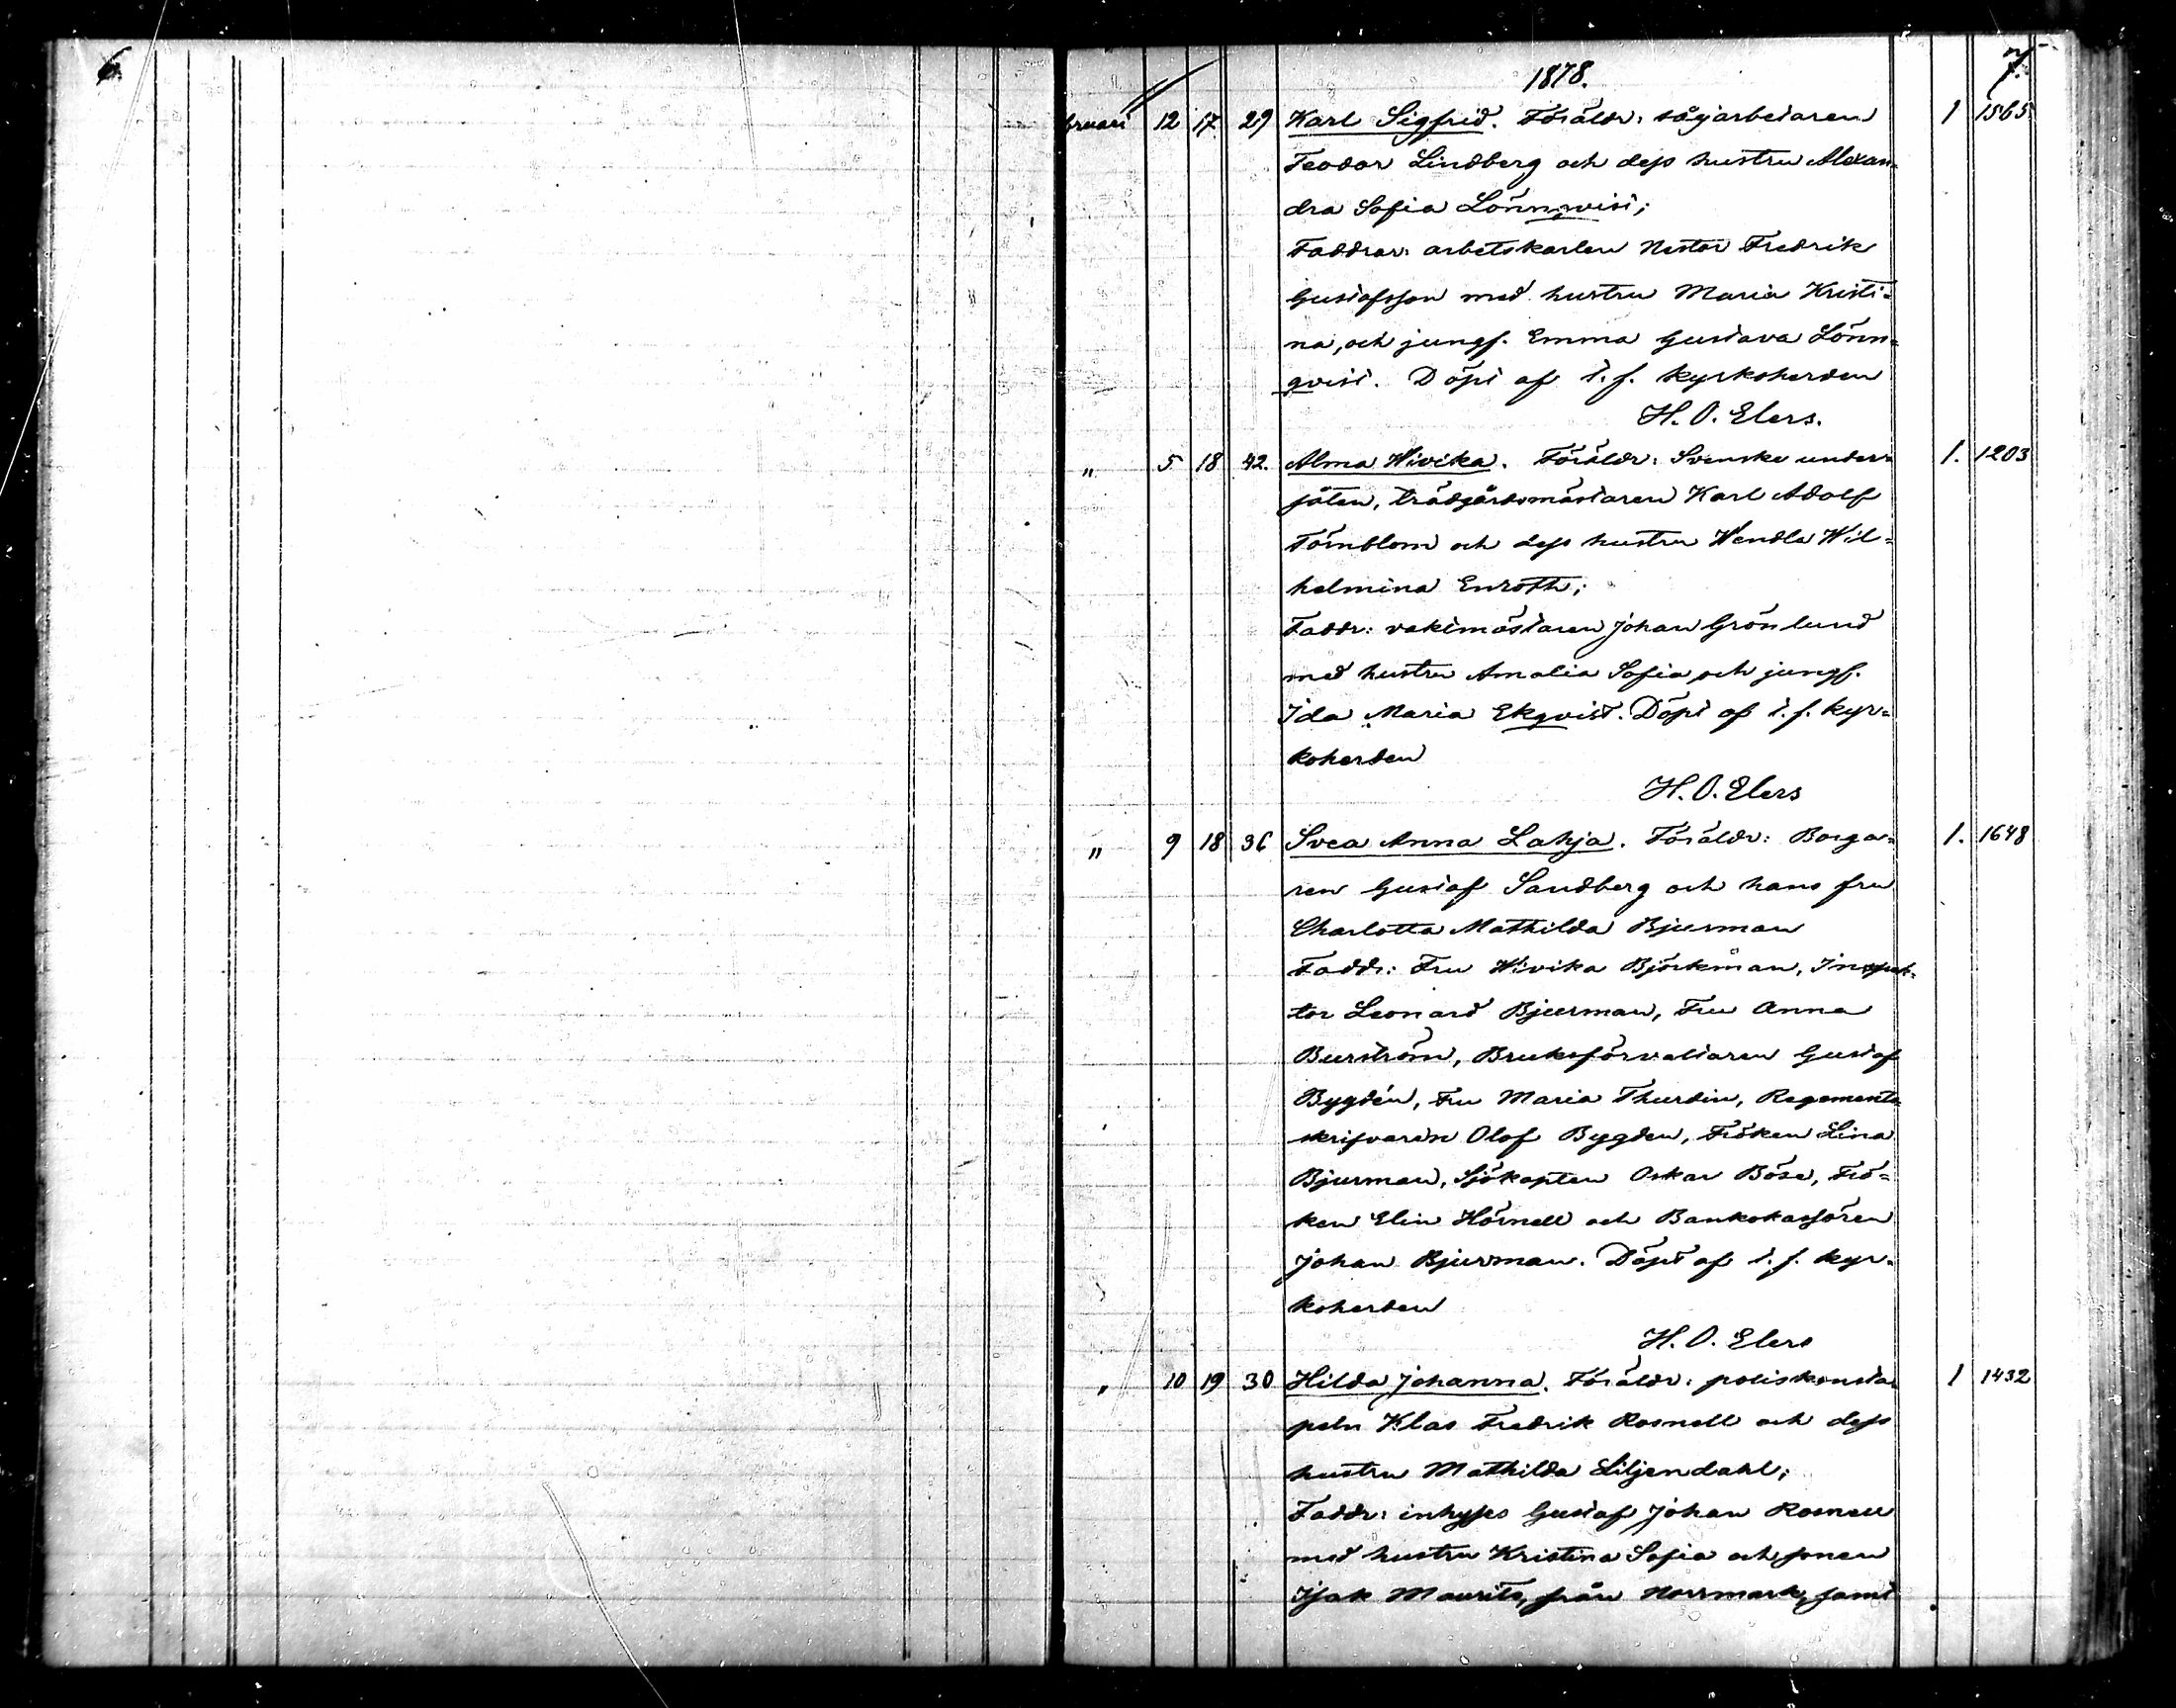 6.
7.
1878.
bruari 12 17 29 Karl Sigfrid. Föräldr: sågarbetaren 1 1565
Teodor Lindberg och dess hustru Alexan=
dra Sofia Lönnqvist;
Faddrar: arbetskarlen Nestor Fredrik
Gustafsson med hustru Maria Kristi=
na, och jungf. Emma Gustava Lönn=
qvist. Döpt af t.f. kyrkoherden
H. O. Elers.
" 5 18 42. Alma Wivika. Föräldr: Svenske under= 1. 1203
såten, trädgårdsmästaren Karl Adolf
Törnblom och dess hustru Wendla Wil=
helmina Enroth;
Faddr: vaktmästaren Johan Grönlund
med hustru Amalia Sofia och jungf.
Ida Maria Ekqvist. Döpt af t.f. kyr=
koherden
H. O. Elers
" 9 18 36 Svea Anna Lahja. Föräldr: Borga= 1. 1648
ren Gustaf Sandberg och hans fru
Charlotta Mathilda Bjurman
Faddr: Fru Wivika Björkman, Inspek=
tor Leonard Bjurman, Fru Anna
Burström, Bruksförvaltaren Gustaf
Bygdén, Fru Maria Thurdin, Regements
skrifvaren Olof Bygden, Fröken Lina
Bjurman, Sjökapten Oskar Böse, Frö=
ken Elin Hörnell och Bankokassören
Johan Bjurman. Döpt af t.f. kyr=
koherden
H. O. Elers
" 10 19 30 Hilda Johanna. Föräldr: poliskonsta= 1 1432
peln Klas Fredrik Rosnell och dess
hustru Mathilda Liljendahl;
Faddr: inhyses Gustaf Johan Rosnell
med hustru Kristina Sofia och sonen
Isak Maurits, från Norrmark, samt